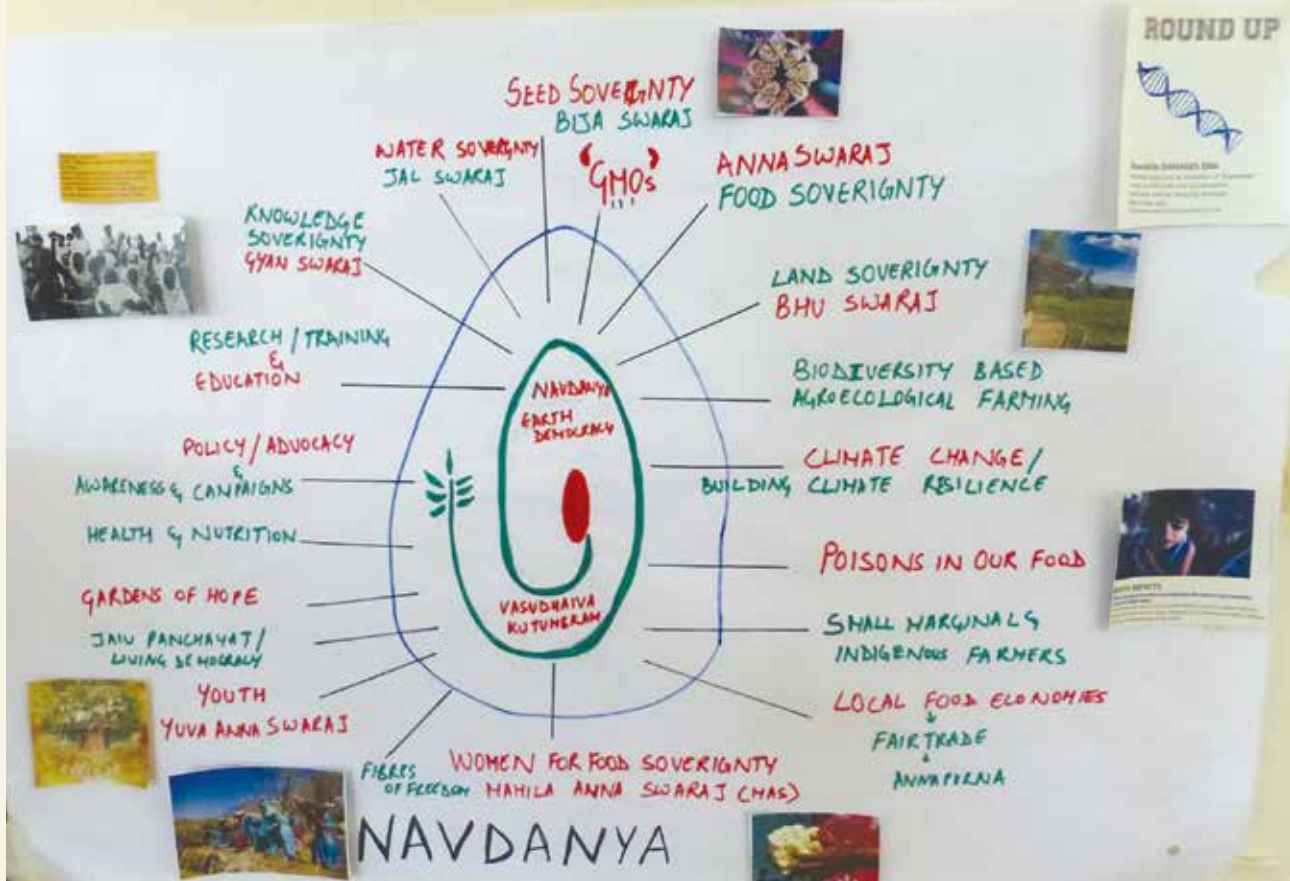 ROUND UP
SEED SOVERIGNTY
BIJA SWARAJ
GMOs
WATER SOVERIGNTY
JAL SWARAJ
ANNA SWARAJ
FOOD SOVERIGNTY
KNOWLEDGE
SOVERIGNTY
GYAN SWARAJ
LAND SOVERIGNTY
BHU SWARAJ
RESEARCH / TRAINING
&
EDUCATION
BIODIVERSITY BASED
AGROECOLOGICAL FARMING
NAVDANYA
EARTH
DEMOCRACY
POLICY / ADVOCACY
&
AWARENESS & CAMPAIGNS
CLIMATE CHANGE /
BUILDING CLIMATE RESILIENCE
HEALTH & NUTRITION
POISONS IN OUR FOOD
GARDENS OF HOPE
VASUDHAIVA
KUTUMBKAM
JAIV PANCHAYAT /
LIVING DEMOCRACY
SMALL MARGINAL &
INDIGENOUS FARMERS
YOUTH
YUVA ANNA SWARAJ
LOCAL FOOD ECONOMIES
FAIRTRADE
ANNAPURNA
FIBRES
OF FREEDOM
WOMEN FOR FOOD SOVERIGNTY
MAHILA ANNA SWARAJ (MAS)
NAVDANYA